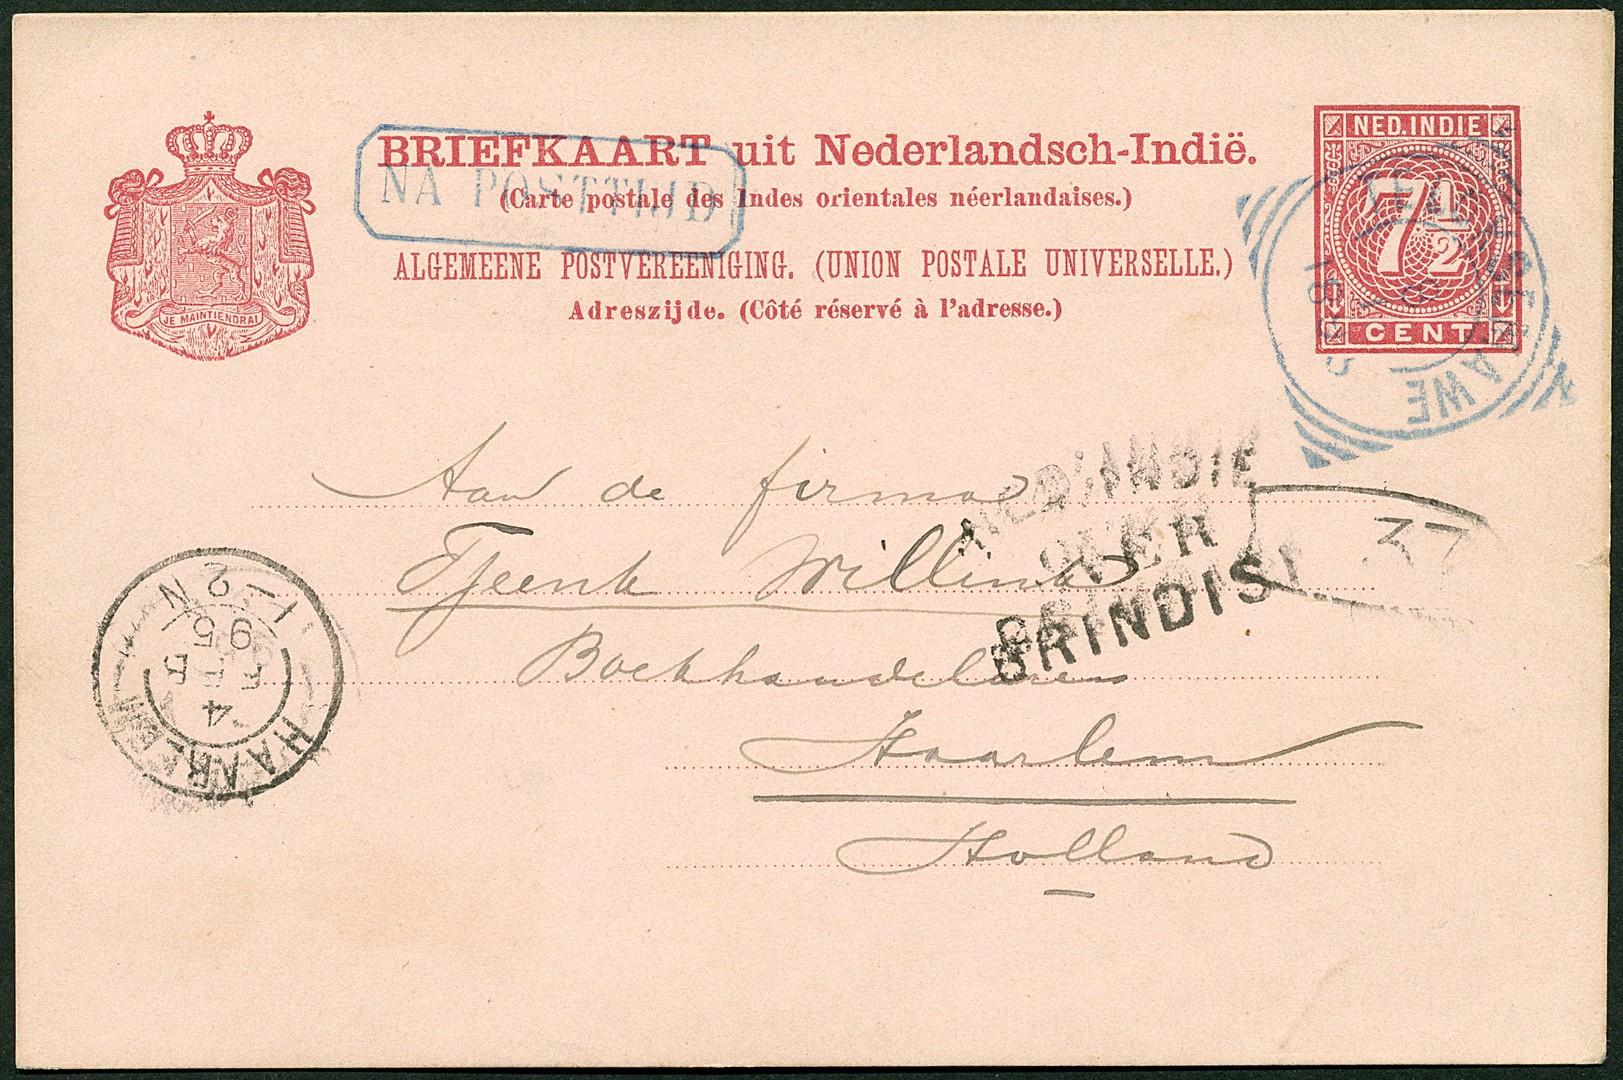 BRIEFKAART uit Nederlandsch-Indië.
(Carte postale des Indes orientales néerlandaises.)
ALGEMEENE POSTVEREENIGING. (UNION POSTALE UNIVERSELLE.)
Adreszijde. (Côté réservé à l'adresse.)
NA POSTTIJD
JE MAINTIENDRAI
NED. INDIE
7½
CENT
Aan de firma
Tjeenk Willink
Boekhandelaren
Haarlem
Holland
NED: INDIE
OVER
BRINDISI
37
HAARLEM
4 FEB
95
1-2 N